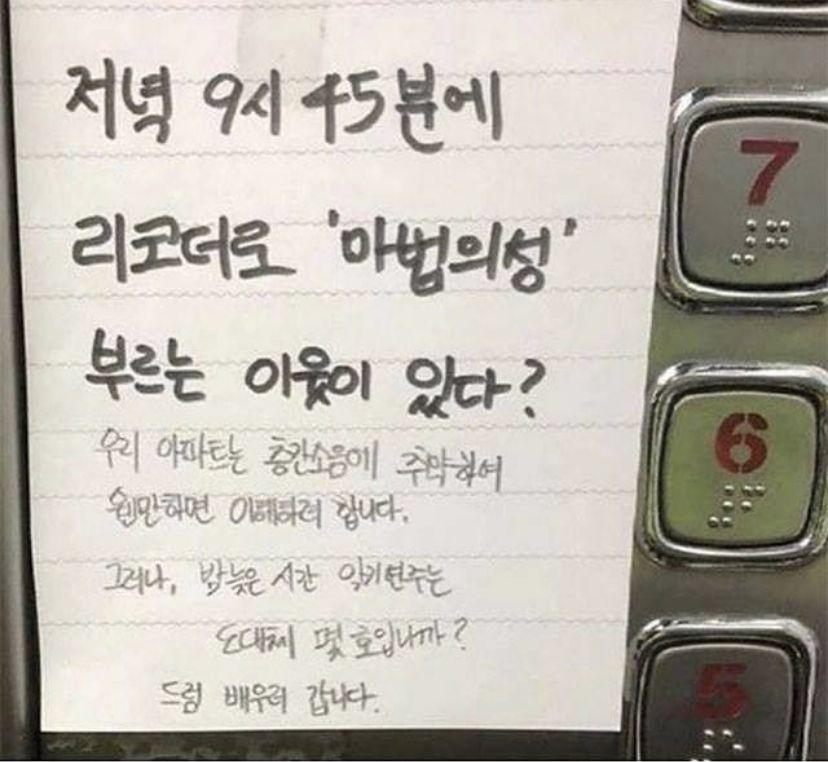 저녁 9시 45분에
리코더로 '마법의성'
부르는 이웃이 있다?
우리 아파트는 층간소음에 취약하여
웬만하면 이해하려 합니다.
그러나, 밤늦은 시간 악기연주는
도대체 몇 호입니까?
드럼 배우러 갑니다.
7
6
5